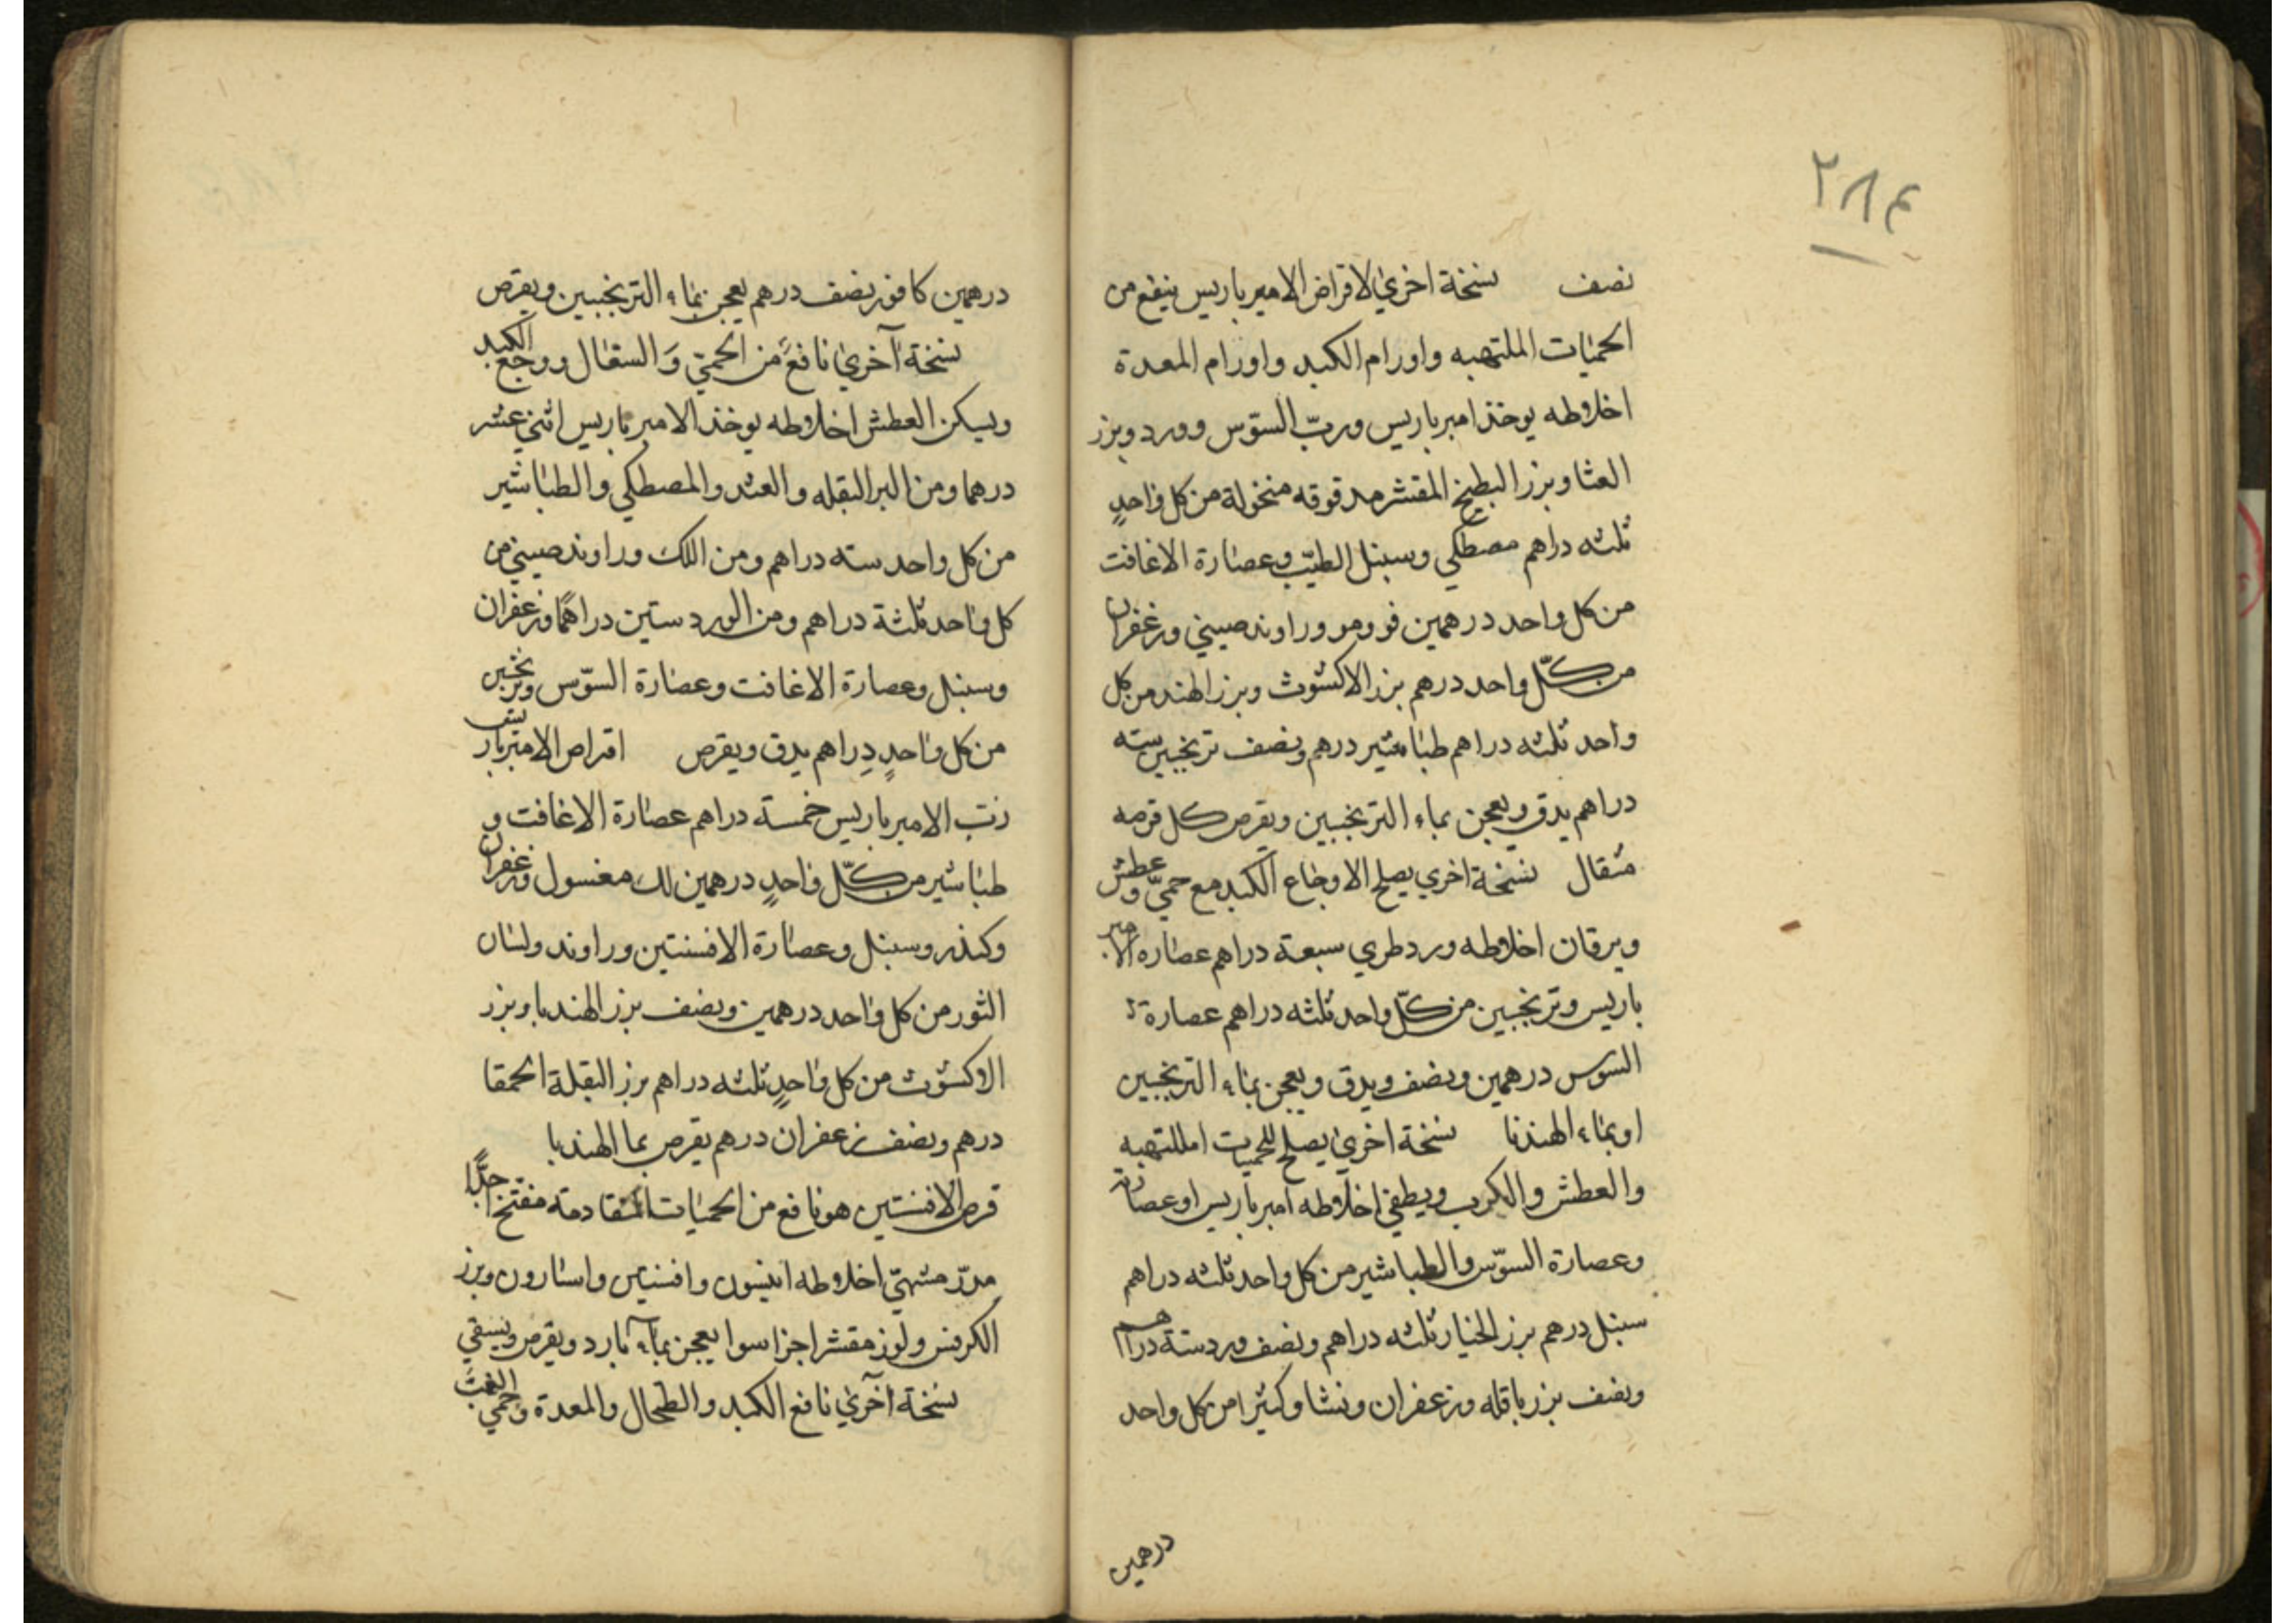 ٢٨٤
نصف نسخة اخري لاقراض الامير باريس ينفع من
الحميات الملتهبه واورام الكبد واورام المعدة
اخلاطه يوخذ امبر باريس ورب السوّس وورد وبزر
العثا وبزر البطيخ المقشر مدقوقه منخولة من كل واحدٍ
ثلثه دراهم مصطكي وسبنل الطيّب وعصارة الاغافت
من كل واحد درهمين فو ومو وراوند صيني وزعفران
من كلّ واحد درهم بزر الاكشوث وبزر الهند من كل
واحد ثلثه دراهم طباشير درهم ونصف ترنجبين سته
دراهم يدق ويعجن بماء الترنجبين ويقرص كل قرصه
مثقال نسخة اخري يصلح الاوجاع الكبد مع حميّ وعطش
ويرقان اخلاطه ورد طري سبعة دراهم عصاره الامبر
باريس وترنجبين من كلّ واحد ثلثه دراهم عصارة
السوس درهمين ونصف ويدق ويعجن بماء الترنجبين
او بماء الهندبا نسخة اخري يصلح للحميات امللتهبه
والعطش والكرب ويطفي اخلاطه امبر باريس او عصارته
وعصارة السوّس والطباشير من كل واحد ثلثه دراهم
سبنل درهم بزر الخيار ثلثه دراهم ونصف ورد ستة دراهم
ونصف بزر باقله وزعفران ونشا وكثيرا من كل واحد
درهمين
درهمين كافور نصف درهم يعجن بماء الترنجبين ويقرص
نسخة آخري نافعً من الحميّ وَ السعال ووجع الكبد
ويسكن العطش اخلاطه يوخذ الامبر باريس اثني عشر
درهما ومن البزر البقله والعثد والمصطكي والطباشير
من كل واحد سته دراهم ومن اللك وراوند صيني من
كل واحد ثلثة دراهم ومن الورد ستين دراهمًا وزعفران
وسبنل وعصارة الاغافت وعصارة السوّس وترنجبين
من كل واحدٍ دِراهم يدق ويقرص اقراص الامبرباريس
رتب الامير باريس خمسة دراهم عصارة الاغافت و
طباشير من كلّ واحدٍ درهمين لك مغسول وزعفران
وكندر وسبنل وعصارة الافسنتين وراوند ولسان
الثور من كل واحد درهمين ونصف بزر الهندبا وبزر
الاكشوث من كل واحدٍ ثلثه دراهم برز البقلة الحمقا
درهم ونصف زعفران درهم يقرص بما الهندبا
قرص الافسنتين هو نافع من الحميات المتقادمة مفتح جدًّا
مدرّ مشهيّ اخلاطه انيسون وافسنتين واسارون وبزر
الكرفس ولوز مقشر اجزا سوا يعجن بمآء بارد ويقرص ويسقي
نسخة آخري نافع الكبد والطحال والمعدة وحمي الغب